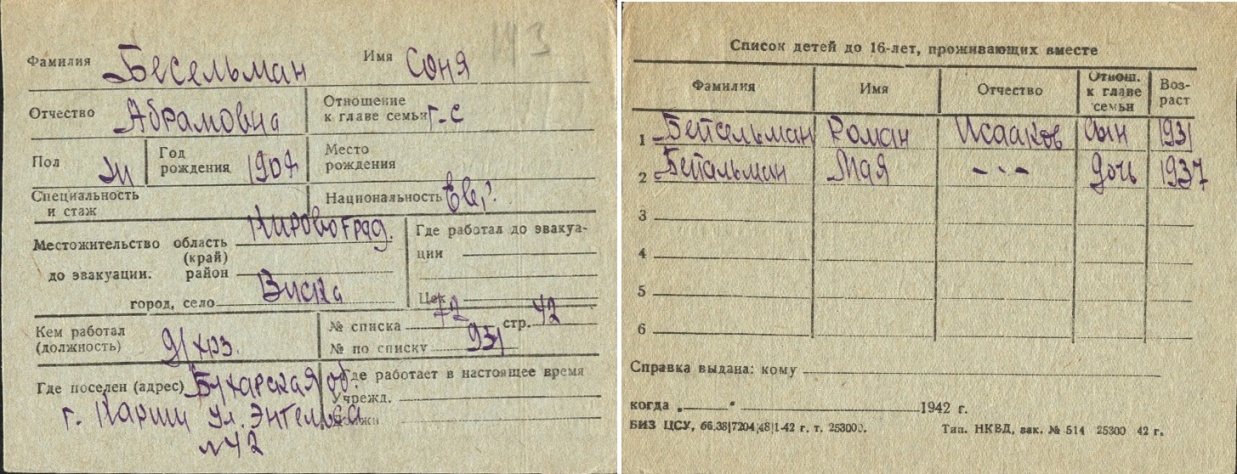 143
Фамилия Бесельман Имя Соня
Отчество Абрамовна Отношение к главе семьи Г-С
Пол Год рождения 1907 Место рождения
Специальность и стаж Национальность Ев.
Местожительство до эвакуации. область (край) Кировоград. район
город, село Виска
Где работал до эвакуации
Цех
Кем работал (должность) д/хоз.
№ списка 72 стр. 42
№ по списку 951
Где поселен (адрес) Бухарская об.
г. Карши ул. Энгельса
№42
Где работает в настоящее время
Учрежд.
Список детей до 16-лет, проживающих вместе
Фамилия Имя Отчество Отнош. к главе семьи Возраст
1 Бейсельман Роман Исааков Сын 1931
2 Бейсльман Мая -"- дочь 1937
3
4
5
6
Справка выдана: кому
когда „ " 1942 г.
БИЗ ЦСУ, 66,38|7204|48|1-42 г. т. 25300. Тип. НКВД, зак. № 514 25300 42 г.